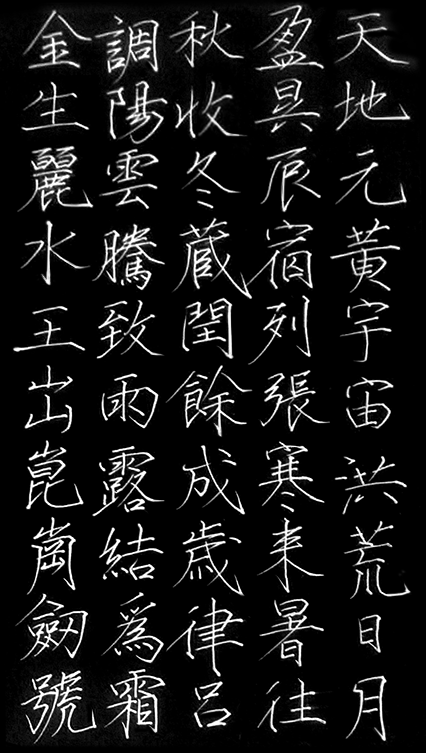 天地元黃宇宙洪荒日月
盈昃辰宿列張寒来暑往
秋收冬蔵閏餘成歳律呂
調陽雲騰致雨露結爲霜
金生麗水王出崑崗劔號